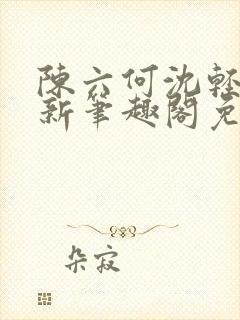 陳六何沈輕
新筆趣閣免
朵寂